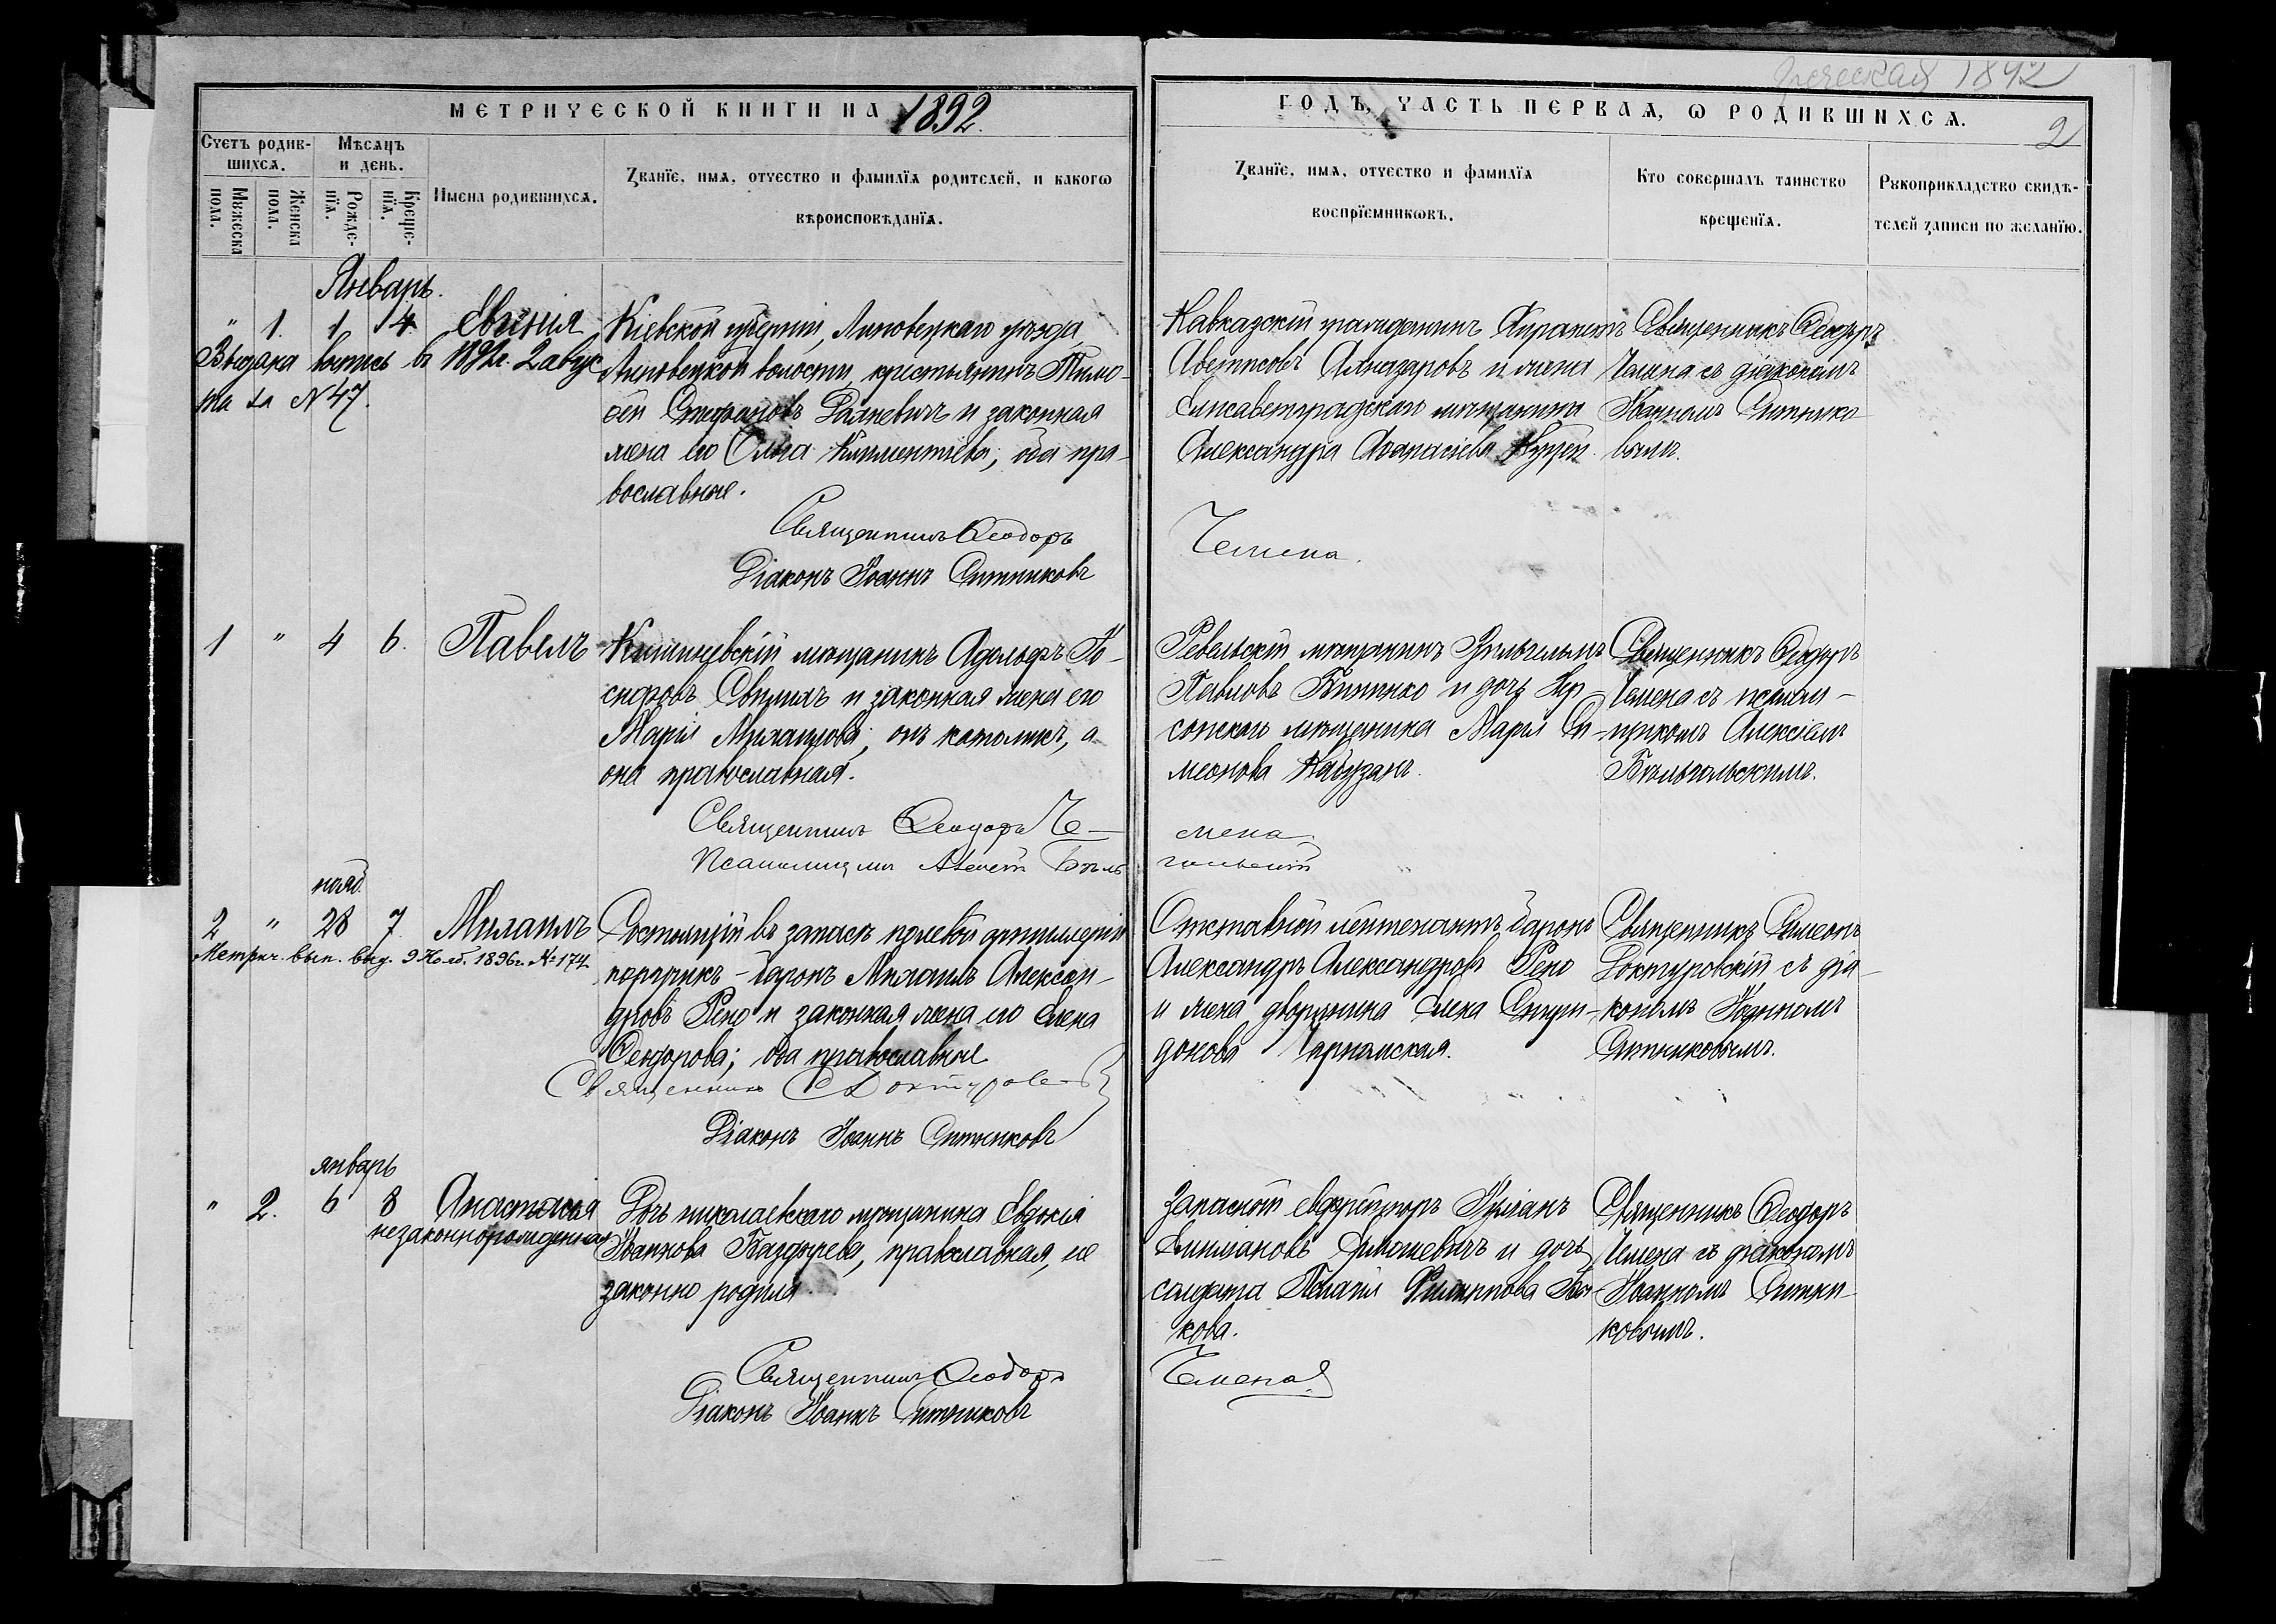 Греческая 1892
МЕТРИЧЕСКОЙ КНИГИ НА 1892.
ГОДЪ, ЧАСТЬ ПЕРВАЯ, Ѡ РОДИВШИХСЯ.
2
Счетъ родив-
шихся.
Мѣсяцъ
и день.
Мужеска
пола.
Женска
пола.
Рожде-
нїя.
Креще-
нїя.
Имена родившихся.
Званїе, имя, отчество и фамилїя родителей, и какогѡ
вѣроисповѣданїя.
Званїе, имя, отчество и фамилїя
воспрїемникѡвъ.
Кто совершалъ таинство
крещенїя.
Рукоприкладство свидѣ-
телей записи по желанїю.
Январь.
" 1. 1 4. Евгенія
Выдана выпись въ 1892г. 2 авгус
та за № 47.
Кіевской губерніи, Липовецкаго уѣзда,
Липовецкой волости, крестьянинъ Тимо-
ѳей Стефановъ и законная
жена его Ольга Климентіева, оба пра-
вославные.
Священникъ Ѳеодоръ
Діаконъ Іоаннъ Ситниковъ
Кавказскій гражданинъ
Аветисовъ Алназаровъ и жена
Елисаветградскаго мѣщанина
Александра Аѳанасіева
Чемена.
Священникъ Ѳеодоръ
Чемена съ діакономъ
Іоанномъ Ситнико-
вымъ.
1 " 4 6. Павелъ
Кишиневскій мѣщанинъ Адольфъ Іо-
сифовъ и законная жена его
Марія Михаилова; онъ католикъ, а
она православная.
Священникъ Ѳеодоръ Че-
Псаломщикъ Алексій Бѣль
Ревельскій мѣщанинъ Вильгельмъ
Павловъ и дочь Хер-
сонскаго мѣщанина Марія Си-
меонова Кабузанъ.
мена
Священникъ Ѳеодоръ
Чемена съ псалом-
щикомъ Алексіемъ
нояб.
2 " 28 7 Михаилъ
Метрич. вып. выд. 9 Нояб. 1896г. № 174
Состоящій въ запасѣ полевой артиллеріи
поручикъ - баронъ Михаилъ Алексан-
дровъ Рено и законная жена его Елена
Ѳеодорова; оба православные
Священникъ С Доктуровс
Діаконъ Іоаннъ Ситниковъ
Отставной лейтенантъ баронъ
Александръ Александровъ Рено
и жена дворянина Елена Спири-
донова
Священникъ Симеонъ
Доктуровскій съ діа-
кономъ Іоанномъ
Ситниковымъ.
январь
" 2. 6 8 Анастасія
незаконнорожденная
Дочь николаевскаго мѣщанина Евдокія
Іоаннова, православная, не
законно родила.
Священникъ Ѳеодоръ
Діаконъ Іоаннъ Ситниковъ
Запасной ефрейторъ Юліанъ
и дочь
солдата Пелагія Филиппова
кова.
Чемена
Священникъ Ѳеодоръ
Чемена съ діакономъ
Іоанномъ Ситни-
ковымъ.